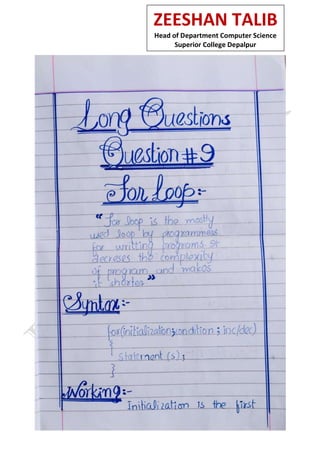 ZEESHAN TALIB
Head of Department Computer Science
Superior College Depalpur
Long Questions
Question #9
For Loop:-
"For loop is the mostly
used loop by programmers
for writting programs. It
decreses the complexity
of program and makes
it shorter"
Syntax:-
for(initialization;condition ; inc/dec)
{
statement (s);
}
Working:-
Initialization is the first